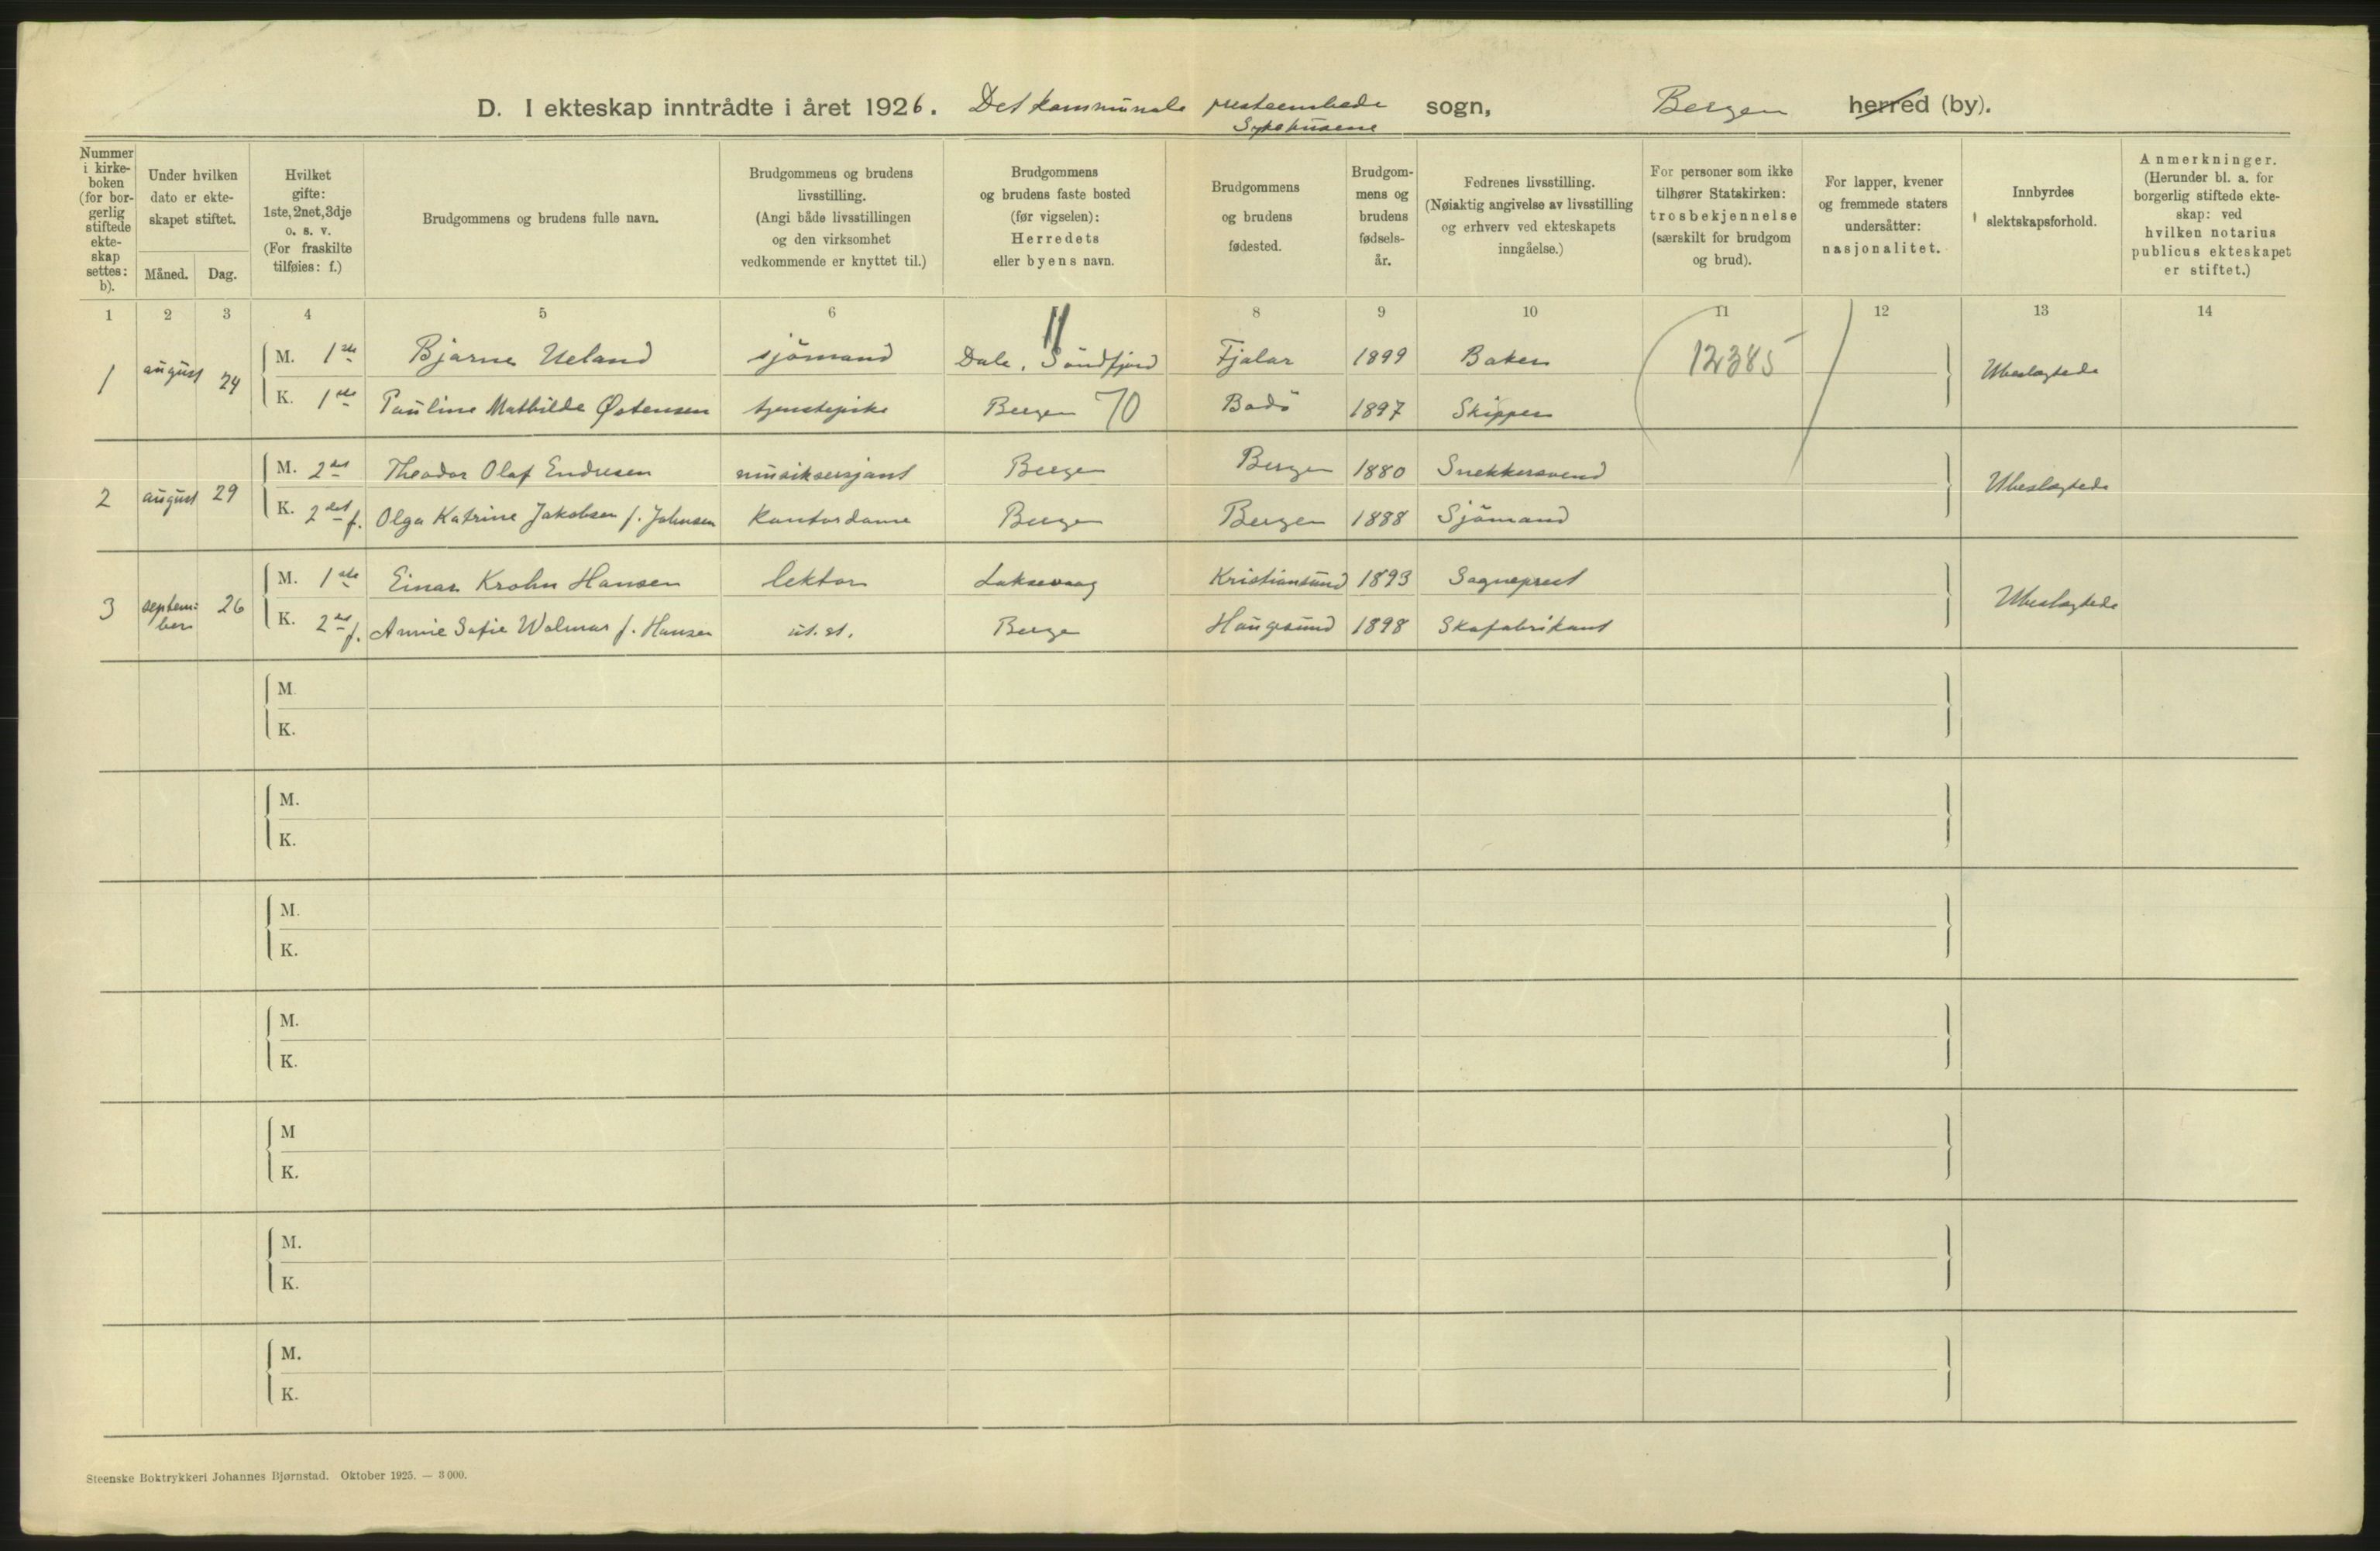 D. I ekteskap inntrådte i året 1926. Det kommunale presteembede sogn, Bergen herred (by).
Sykehusene
Nummer i kirke-boken (for bor-gerlig stiftede ekte-skap settes: b).
Under hvilken dato er ekte-skapet stiftet.
Måned. Dag.
Hvilket gifte: 1ste, 2net, 3dje o. s. v. (For fraskilte tilføies: f.)
Brudgommens og brudens fulle navn.
Brudgommens og brudens livsstilling. (Angi både livsstillingen og den virksomhet vedkommende er knyttet til.)
Brudgommens og brudens faste bosted (før vigselen): Herredets eller byens navn.
Brudgommens og brudens fødested.
Brudgom-mens og brudens fødsels-år.
Fedrenes livsstilling. (Nøiaktig angivelse av livsstilling og erhverv ved ekteskapets inngåelse.)
For personer som ikke tilhører Statskirken: trosbekjennelse (særskilt for brudgom og brud).
For lapper, kvener og fremmede staters undersåtter: nasjonalitet.
Innbyrdes slektskapsforhold.
Anmerkninger. (Herunder bl. a. for borgerlig stiftede ekte-skap: ved hvilken notarius publicus ekteskapet er stiftet.)
1 2 3 4 5 6 8 9 10 11 12 13 14
1 august 24 M. 1ste Bjarne Ueland sjömand Dale, Söndfjord Fjalar 1899 Baker 12385 Ubeslægtede
K. 1ste Pauline Mathilde Østensen tjenestepike Bergen 70 Bodö 1897 Skipper
2 august 29 M. 2det Theodor Olaf Endresen musiksersjant Bergen Bergen 1880 Snekkersvend Ubeslægtede
K. 2det f. Olga Katrine Jakobsen f. Johnsen Kontordame Bergen Bergen 1888 Sjömand
3 septem: ber 26 M. 1ste Einar Krohn Hansen lektor Laksevaag Kristiansund 1893 Sogneprest Ubeslægtede
K. 2det f. Annie Sofie Wolmar f. Hansen ut. st. Bergen Haugesund 1898 Skofabrikant
M.
K.
M.
K.
M.
K.
M.
K.
M
K.
M.
K.
M.
K.
Steenske Boktrykkeri Johannes Bjørnstad. Oktober 1925. — 3 000.